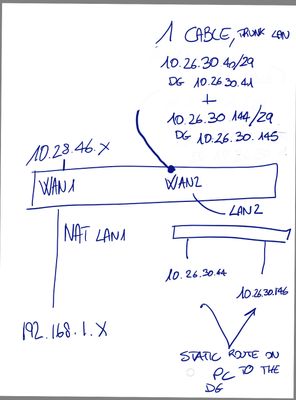 1 CABLE, TRUNK LAN
10.26.30 40/29
DG 10.26.30.41
+
10.26.30 144/29
DG 10.26.30.145
10.28.46.X
WAN1
WAN2
LAN2
NAT LAN1
10.26.30.44
10.26.30.146
192.168.1.X
STATIC ROUTE ON
PC TO THE
DG